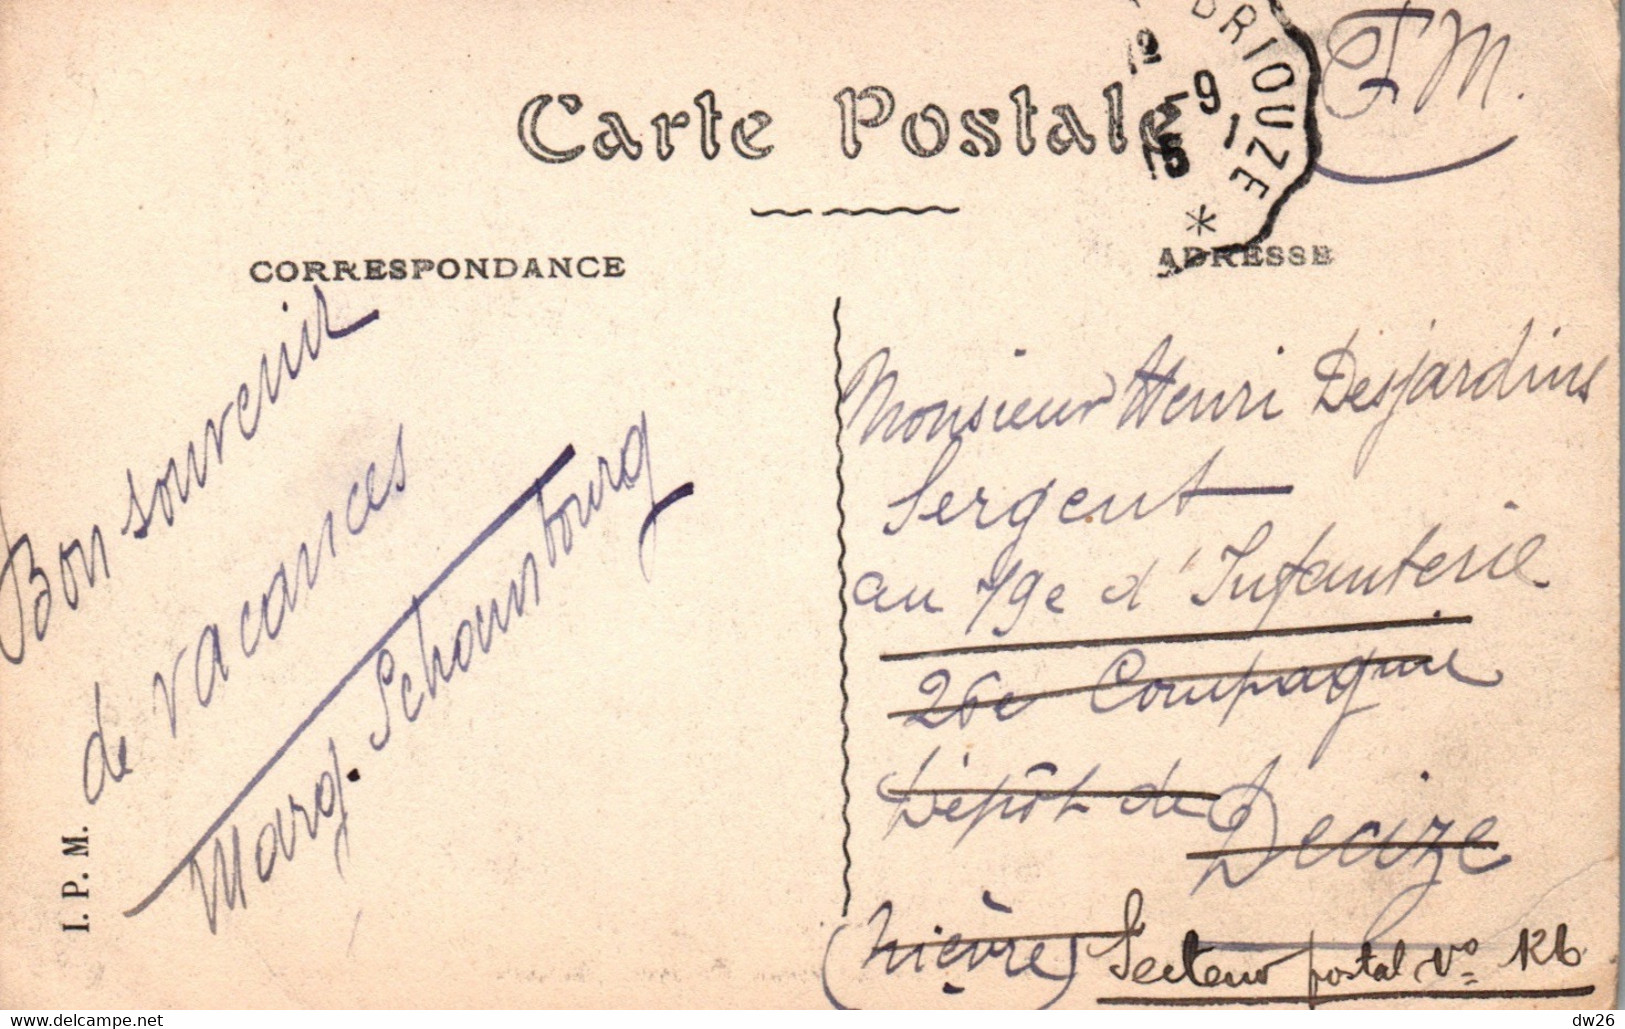 DRIOUZE
12
-9
15
F.M.
Carte Postale
CORRESPONDANCE
ADRESSE
Bon souvenir
de vacances
Marg. Schoumbourg
I. P. M.
Monsieur Henri Desjardins
Sergent
au 79e d'Infanterie
26e Compagnie
Dépôt de
Decize
(Nièvre) Secteur postal No 126
dw26